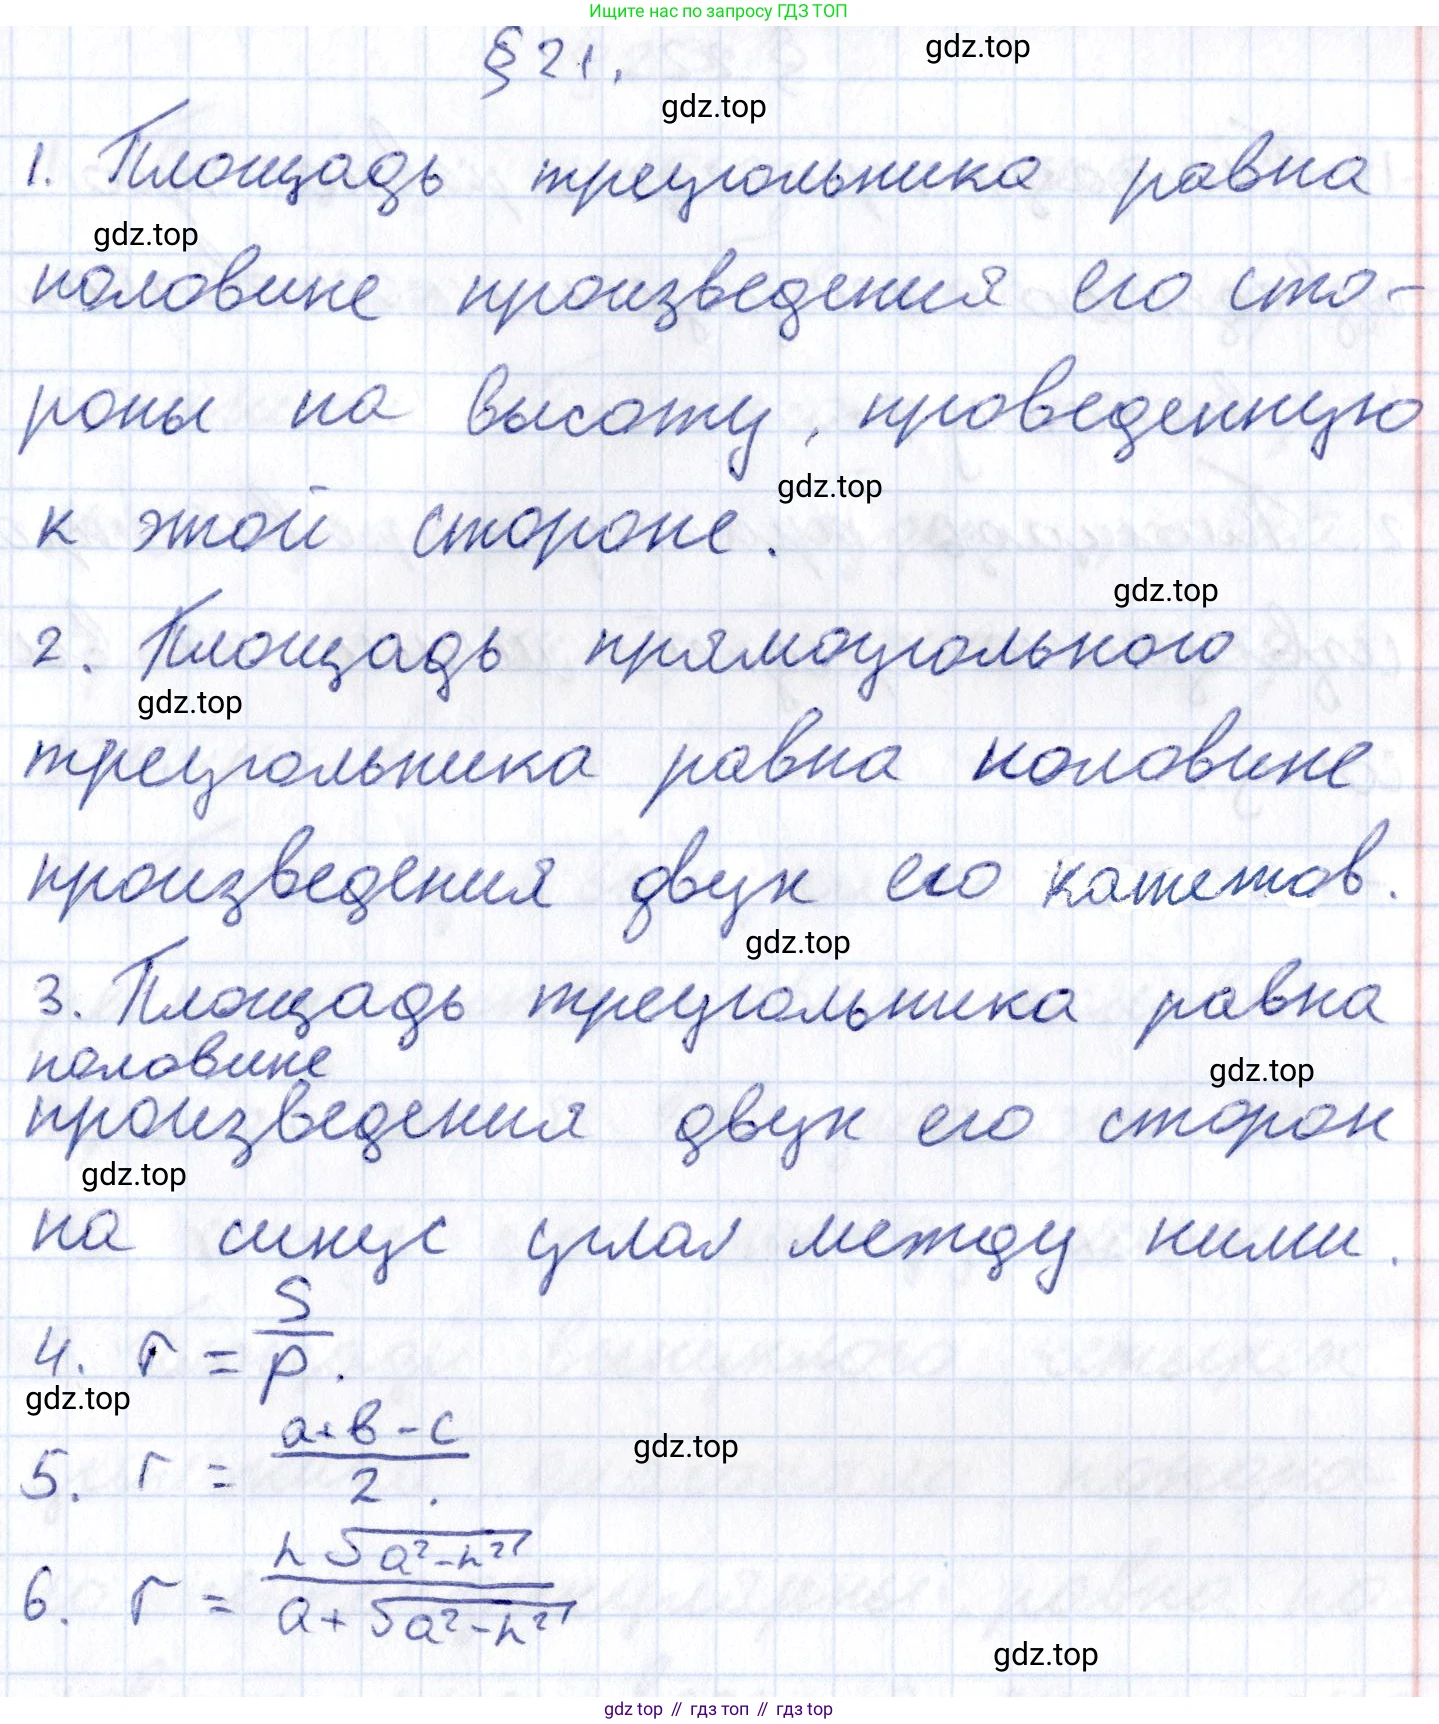 Ищите нас по запросу ГДЗ ТОП
§ 21.
gdz.top
gdz.top
1. Площадь треугольника равна
gdz.top
половине произведения его сто-
роны на высоту, проведенную
gdz.top
к этой стороне.
gdz.top
2. Площадь прямоугольного
gdz.top
треугольника равна половине
произведения двух его катетов.
gdz.top
3. Площадь треугольника равна
половине
gdz.top
произведения двух его сторон
gdz.top
на синус угла между ними.
4. r = S/p.
gdz.top
5. r = (a+b-c)/2.
gdz.top
6. r = (h√(a²-h²))/(a+√(a²-h²))
gdz.top
gdz top // гдз топ // гдз top